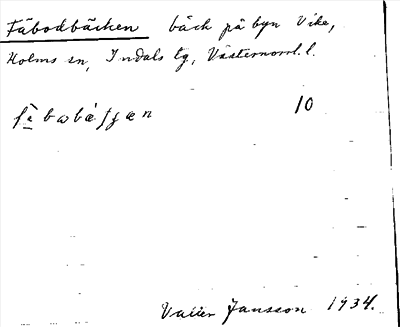 Fäbodbäcken bäck på byn Vike,
Holms sn, Indals tg, Västernorrl. l.
10
Valter Jansson 1934.